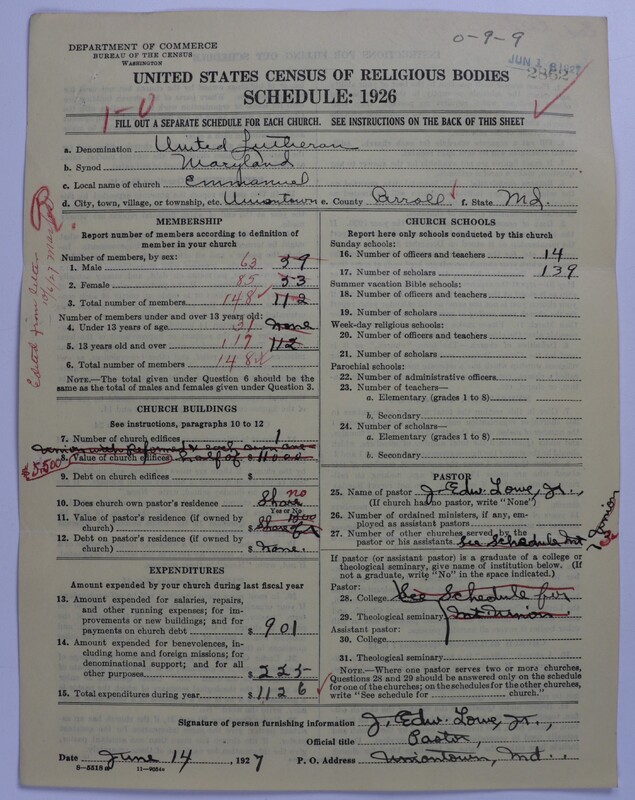 0-9-9
DEPARTMENT OF COMMERCE
BUREAU OF THE CENSUS
WASHINGTON
JUN 1 8 1927
2362
UNITED STATES CENSUS OF RELIGIOUS BODIES
SCHEDULE: 1926
1-0
FILL OUT A SEPARATE SCHEDULE FOR EACH CHURCH. SEE INSTRUCTIONS ON THE BACK OF THIS SHEET
a. Denomination United Lutheran
b. Synod Maryland
c. Local name of church Emmanuel
d. City, town, village, or township, etc. Uniontown e. County Carroll f. State Md.
Edited from letter 10/6/27
MEMBERSHIP
Report number of members according to definition of member in your church
Number of members, by sex:
1. Male 63 59
2. Female 85 53
3. Total number of members 148 112
Number of members under and over 13 years old:
4. Under 13 years of age 31 None
5. 13 years old and over 117 112
6. Total number of members 148
NOTE.—The total given under Question 6 should be the same as the total of males and females given under Question 3.
CHURCH BUILDINGS
See instructions, paragraphs 10 to 12
7. Number of church edifices 1
Union with Reformed & each own one
$5,500 8. Value of church edifices half of $11000
9. Debt on church edifices $
10. Does church own pastor's residence Share no
Yes or No
11. Value of pastor's residence (if owned by church) $ Share of 1500
12. Debt on pastor's residence (if owned by church) $ None.
EXPENDITURES
Amount expended by your church during last fiscal year
13. Amount expended for salaries, repairs, and other running expenses; for improvements or new buildings; and for payments on church debt $ 901
14. Amount expended for benevolences, including home and foreign missions; for denominational support; and for all other purposes $ 225
15. Total expenditures during year $ 1126
CHURCH SCHOOLS
Report here only schools conducted by this church
Sunday schools:
16. Number of officers and teachers 14
17. Number of scholars 139
Summer vacation Bible schools:
18. Number of officers and teachers
19. Number of scholars
Week-day religious schools:
20. Number of officers and teachers
21. Number of scholars
Parochial schools:
22. Number of administrative officers
23. Number of teachers—
a. Elementary (grades 1 to 8)
b. Secondary
24. Number of scholars—
a. Elementary (grades 1 to 8)
b. Secondary
PASTOR
25. Name of pastor J. Edw. Lowe, Jr.,
(If church has no pastor, write "None")
26. Number of ordained ministers, if any, employed as assistant pastors
27. Number of other churches served by the pastor or his assistants See Schedule Mt Union 3
If pastor (or assistant pastor) is a graduate of a college or theological seminary, give name of institution below. (If not a graduate, write "No" in the space indicated.)
Pastor:
28. College See Schedule for
29. Theological seminary Mt. Union.
Assistant pastor:
30. College
31. Theological seminary
NOTE.—Where one pastor serves two or more churches, Questions 28 and 29 should be answered only on the schedule for one of the churches; on the schedules for the other churches, write "See schedule for ............ church."
Signature of person furnishing information J. Edw. Lowe, Jr.,
Official title Pastor,
Date June 14, 1927 P. O. Address Uniontown, Md.
8-5518 11-9054